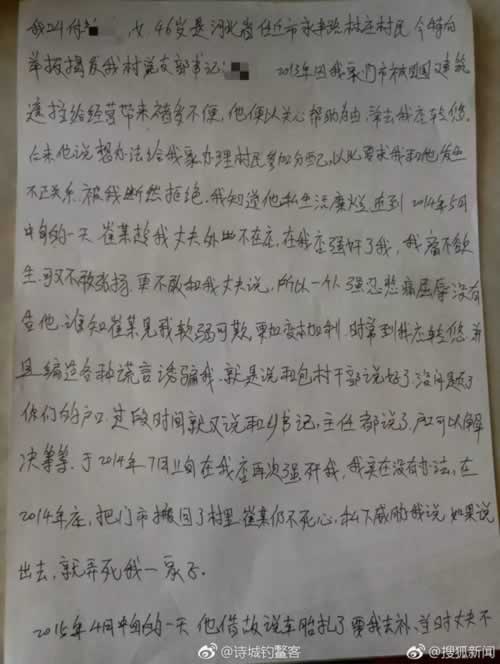 我叫付 女,46岁是河北省任丘市永丰路 村村民今特向
举报揭发我村党支部书记: 2013年因我家门市被 建筑
遮挡给经营带来诸多不便,他便以关心帮助为由,常去我店转悠,
后来他说想办法给我家办理村民参加分配,以此要求我和他发生
不正关系.被我断然拒绝,我知道他私生活糜烂,直到2014年5月
中旬的一天 崔某趁我丈夫外出不在店,在我店强奸了我,我痛不欲
生.可又不敢张扬.更不敢和我丈夫说,所以一个人强忍悲痛屈辱没有
告他.谁知崔某见我软弱可欺,更加变本加利.时常到我店转悠.并
且编造各种谎言诱骗我.就是说和包村干部说好了.没问题
你们的户口.过段时间就又说和 书记,主任都说了.户口可以解
决等等.于2014年7月上旬在我店再次强奸我,我实在没有办法,在
2014年底,把门市搬回了村里.崔某仍不死心,私下威胁我说如果说
出去,就弄死我一家子.
2015年4月中旬的一天 他借故说车胎扎了要我去补,当时丈夫不
@诗城钓鳌客
@搜狐新闻